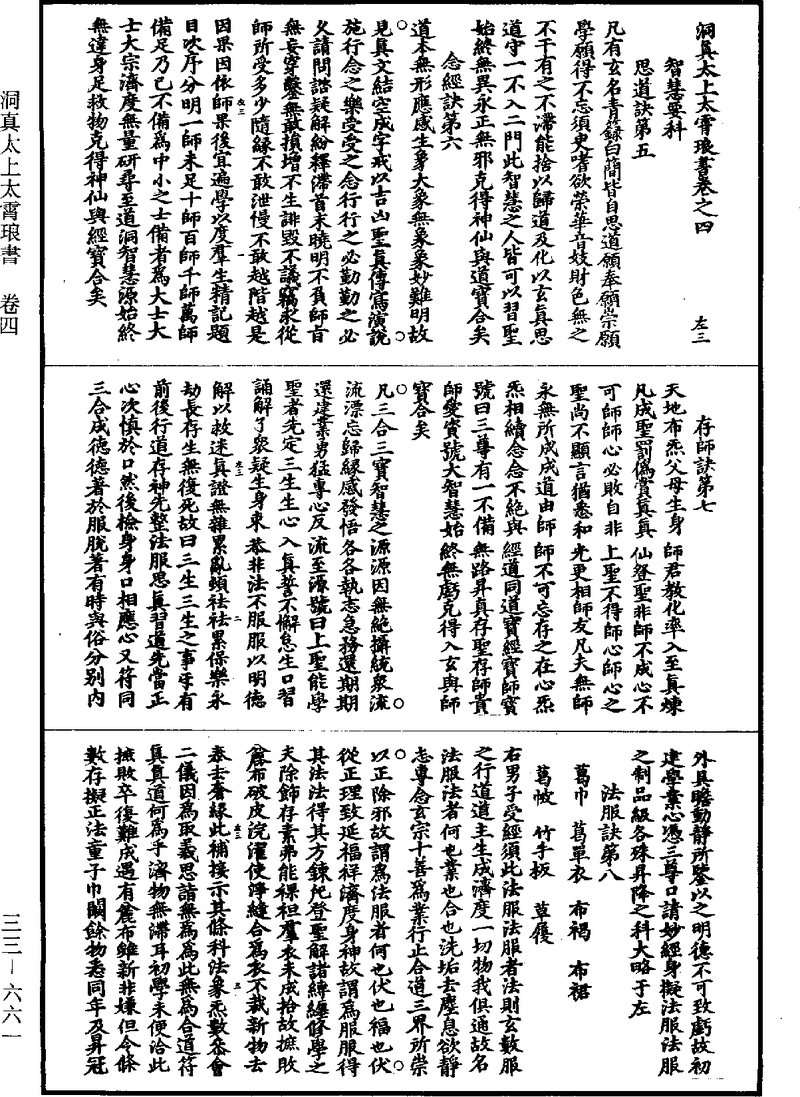 洞真太上太霄琅書卷之四 左三
智慧要科
思道訣第五
凡有玄名青籙白簡皆自思道願奉願崇願
學願得不忘須臾嗜欲榮華音妓財色無之
不干有之不滯能捨以歸道及化以玄真思
道守一不入二門此智慧之人皆可以習聖
始終無異永正無邪克得神仙與道寶合矣
念經訣第六
道本無形應感生象大象無象象妙難明故
見真文結空成字戒以吉凶聖真傳寫演說
施行念之樂受受之念行行之必勤勤之必
久請問諮疑解紛釋滯首末曉明不負師旨
無妄穿鑿無敢損增不生誹毀不議竊求從
師所受多少隨緣不敢泄慢不敢越階越是
因果因依師果後宜遍學以度羣生精記題
目吹序分明一師未足十師百師千師萬師
備足乃已不備為中小之士備者為大士大
士大宗濟度無量研尋至道洞智慧源始終
無違身足救物克得神仙與經寶合矣
存師訣第七
天地布炁父母生身師君教化率入至真煉
凡成聖罰偽賞真真仙登聖非師不成心不
可師師心必敗自非上聖不得師心師心之
聖尚不顯言猶悉和光更相師友凡夫無師
永無所成成道由師師不可忘存之在心炁
炁相續念念不絕與經道同道寶經寶師寶
號曰三尊有一不備無路昇真存聖存師貴
師愛資號大智慧始終無虧克得入玄與師
寶合矣
凡三合三寶智慧之源源因無絕攝統衆流
流漂忘歸緣感發悟各各執志急務還期期
還建業勇猛專心反流至源號曰上聖能學
聖者先定三生生心入真誓不懈怠生口習
誦解了衆疑生身束恭非法不服服以明德
解以救迷真證無雜累亂蜎祛祛累保樂永
劫長存生無復死故曰三生三生之事乎有
前後行道存神先整法服思真習道先當正
心次慎於口然後檢身身口相應心又符同
三合成德德著於服脫著有時與俗分別內
外具瞻動靜所鑒以之明德不可致虧故初
建學素心憑三尊口請妙經身擬法服法服
之制品級各殊昇降之科大略于左
法服訣第八
葛巾 葛單衣 布褐 布裙
葛帔 竹手板 草履
右男子受經須此法服法服者法則玄數服
之行道道主生成濟度一切物我俱通故名
法服法者何也業也合也洗垢去塵息欲靜
志專念玄宗十善為業行止合道三界所崇
以正除邪故謂為法服者何也伏也福也伏
從正理致延福祥濟度身神故謂為服服得
其法法得其方鍊凡登聖解諸縛纏修學之
夫除飾存素弗能裸袒羣衣未成拾故摭敗
麄布破皮浣濯使淨縫合為衣不裁新物去
泰去奢緣此補接示其條科法象炁數叅會
二儀因為取義思諧無為為此無為合道符
真真道何為乎濟物無滯耳初學未便洽此
摭敗卒復難成遇有麄布雖新非嫌但令條
數存擬正法童子巾闕餘物悉同年及昇冠
洞真太上太霄琅書 卷四
三三—六六一